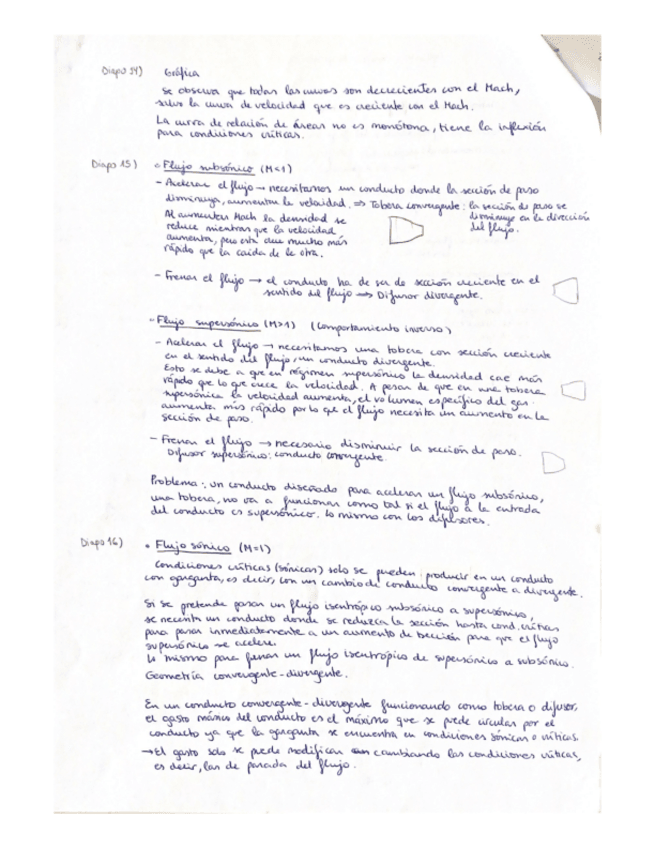 Diapo 14) Gráfica
Se observa que todas las curvas son decrecientes con el Mach,
salvo la curva de velocidad que es creciente con el Mach.
La curva de relación de áreas no es monótona, tiene la inflexión
para condiciones críticas.
Diapo 15) • Flujo subsónico (M<1)
- Acelerar el flujo → necesitamos un conducto donde la sección de paso
disminuya, aumentan la velocidad. ⇒ Tobera convergente: la sección de paso se
disminuye en la dirección
del flujo.
Al aumentar Mach la densidad se
reduce mientras que la velocidad
aumenta, pero esta crece mucho más
rápido que la caída de la otra.
- Frenar el flujo → el conducto ha de ser de sección creciente en el
sentido del flujo → Difusor divergente.
- Flujo supersónico (M>1) (Comportamiento inverso)
- Acelerar el flujo → necesitamos una tobera con sección creciente
en el sentido del flujo, un conducto divergente.
Esto se debe a que en régimen supersónico la densidad cae más
rápido que lo que crece la velocidad. A pesar de que en una tobera
supersónica la velocidad aumenta, el volumen específico del gas
aumenta más rápido por lo que el flujo necesita un aumento en la
sección de paso.
- Frenar el flujo → necesario disminuir la sección de paso.
Difusor supersónico: conducto convergente.
Problema: un conducto diseñado para acelerar un flujo subsónico,
una tobera, no va a funcionar como tal si el flujo a la entrada
del conducto es supersónico. Lo mismo con los difusores.
Diapo 16) • Flujo sónico (M=1)
Condiciones críticas (sónicas) solo se pueden producir en un conducto
con garganta, es decir, con un cambio de conducto convergente a divergente.
Si se pretende pasar un flujo isentrópico subsónico a supersónico,
se necesita un conducto donde se reduzca la sección hasta cond. críticas
para pasar inmediatamente a un aumento de sección para que el flujo
supersónico se acelere.
Lo mismo para frenar un flujo isentrópico de supersónico a subsónico.
Geometría convergente-divergente.
En un conducto convergente-divergente funcionando como tobera o difusor,
el gasto másico del conducto es el máximo que se puede circular por el
conducto ya que la garganta se encuentra en condiciones sónicas o críticas.
→ El gasto solo se puede modificar cambiando las condiciones críticas,
es decir, las de parada del flujo.